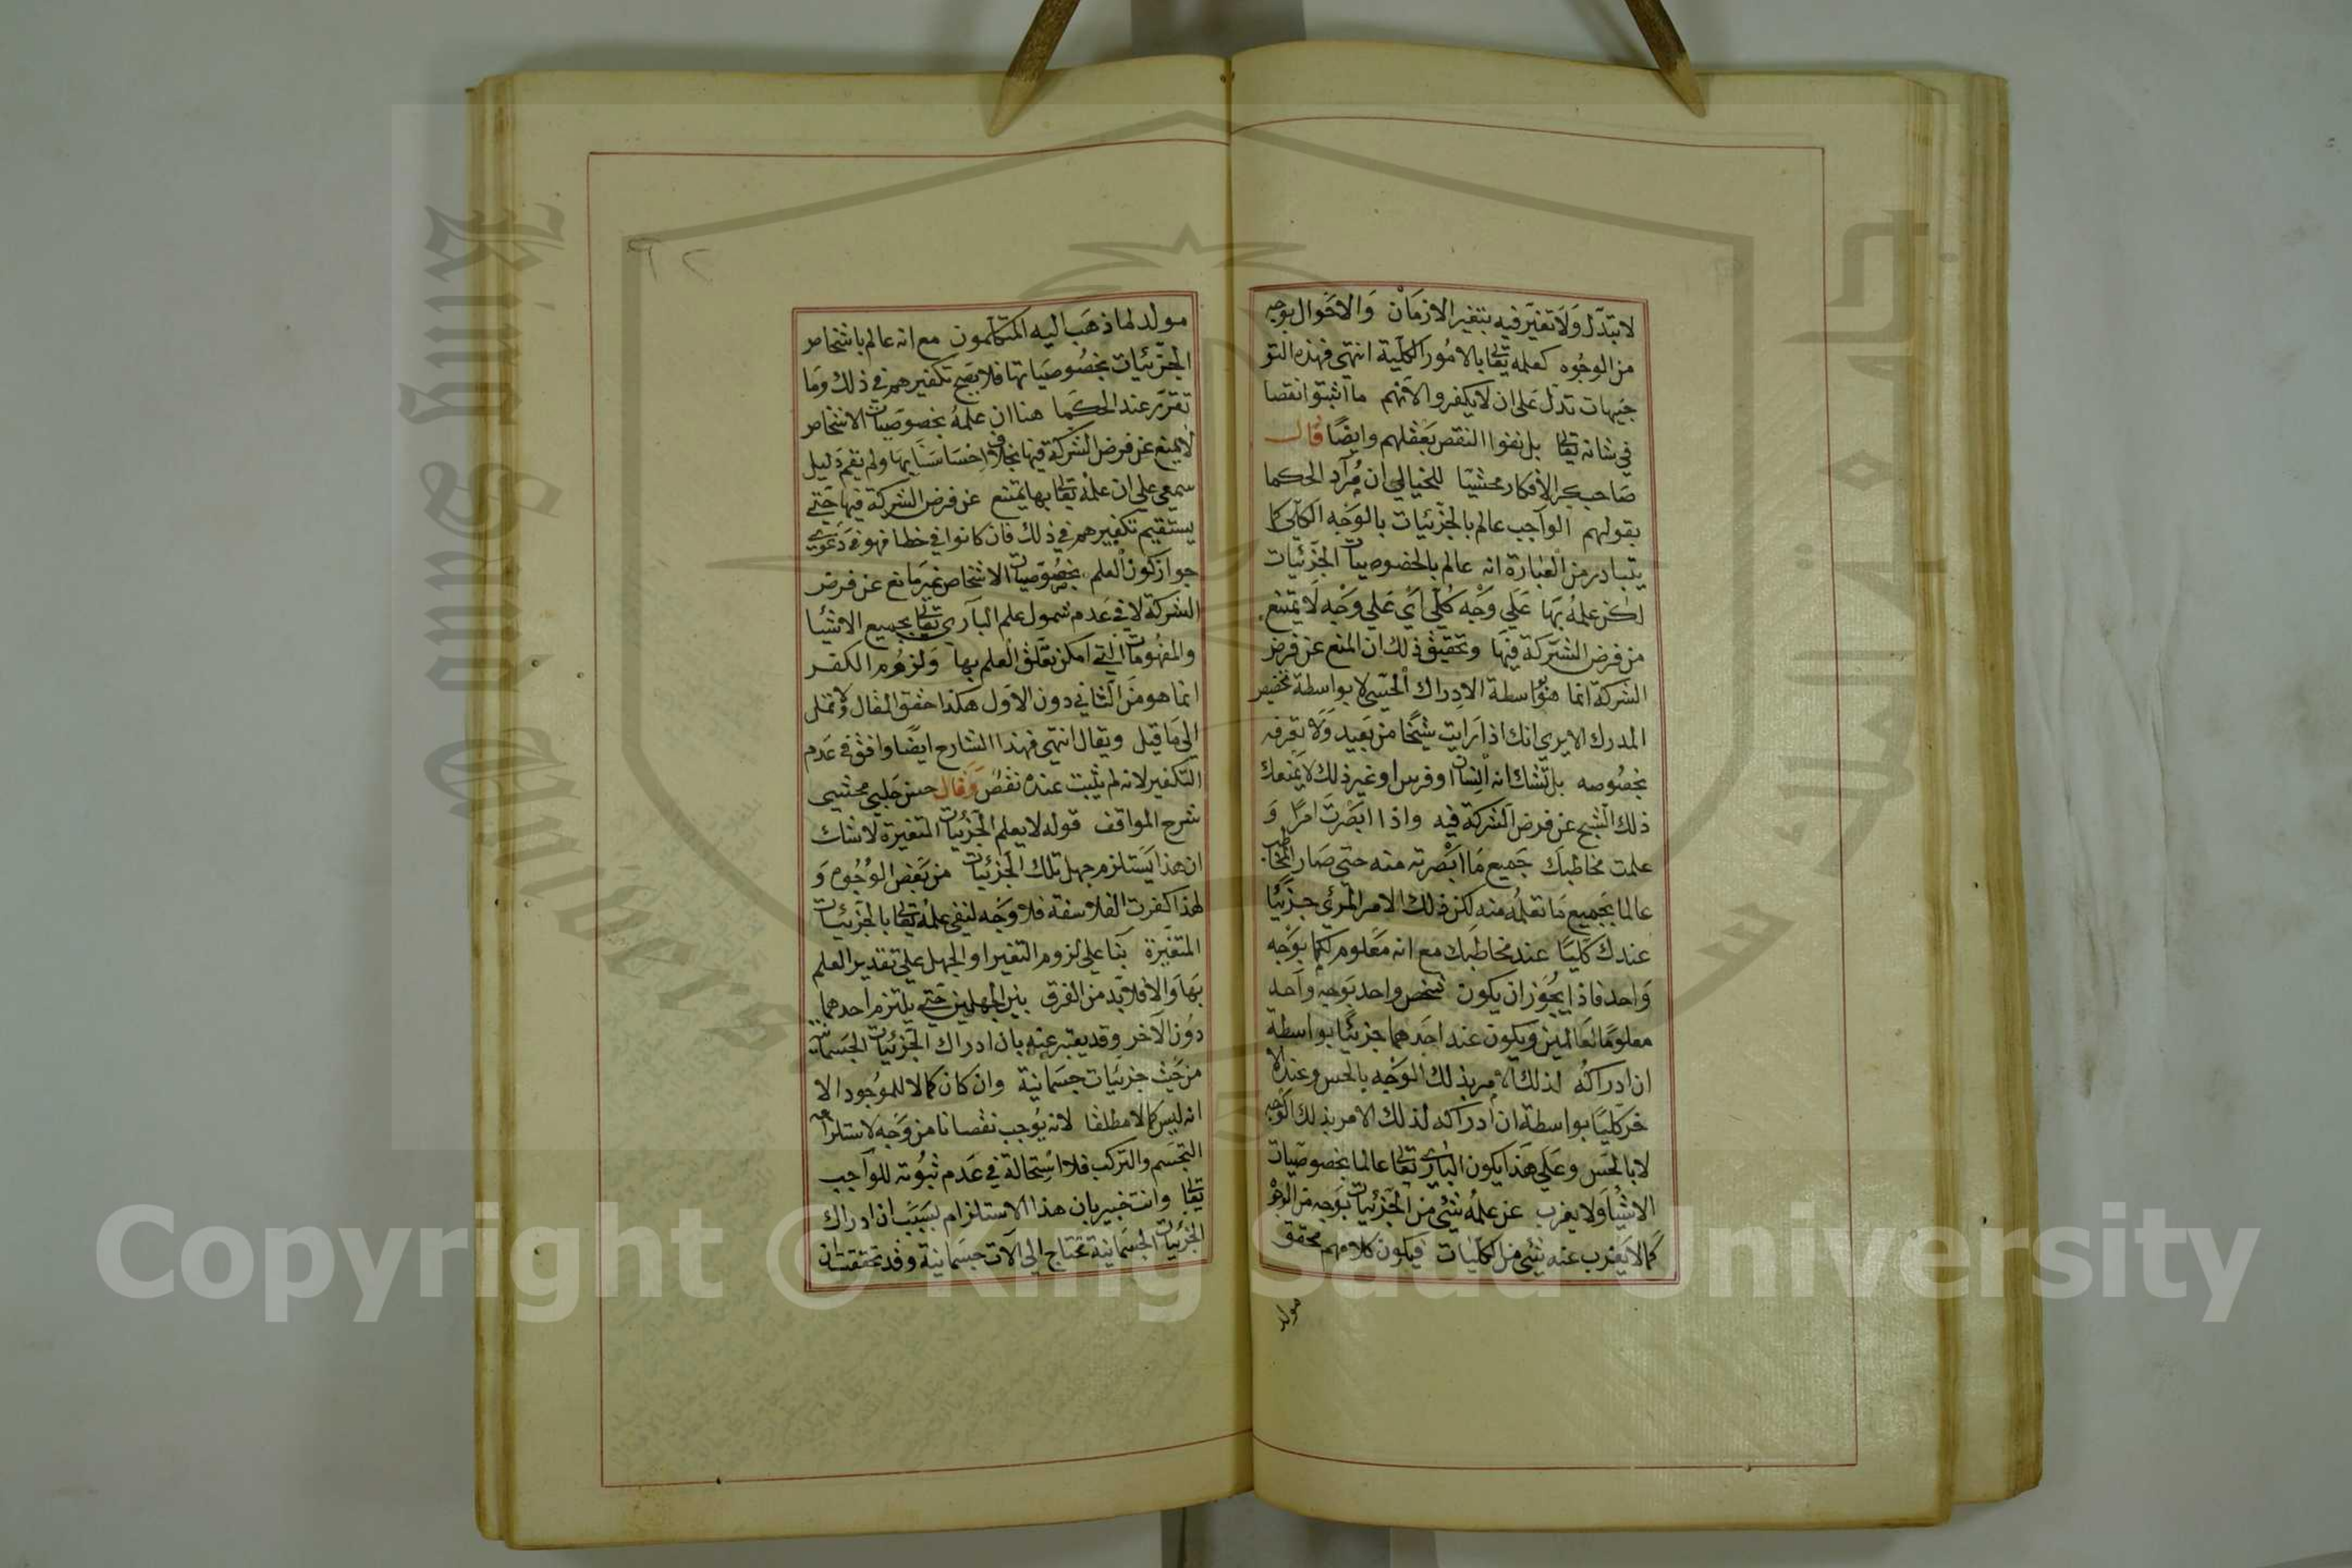 لا يتبدّل وَلَا تغيّر فيه بتغير الازمَان وَالاحْوال بوجه
من الوجُوه كعلمه تعٰا بالامُور الكلّية انتهى فهذه التو
جيهات تدلّ عَلى ان لا يكفروا لانّهم ما اثبتوا نقصا
فى شانه تعٰا بل نفوا النقص بعقلهم وايضًا قال
صَاحب الافكار محشيّا للخيالي ان مُراد الحكما
بقولهم الواجب عالم بالجزئيات بالوَجه الكلّي كما
يتبادر من العبَارة انه عالم بالخصوصيات الجزئيات
لكن علمهُ بهَا عَلي وَجْه كُلّي اَي عَلي وجْه لَا يمتنع
من فرض الشركة فيهَا وتحقيق ذلك ان المنع عن فرض
الشركة انما هو بواسطة الادراك الحسّى لا بواسطة تخصيص
المدرك الا يرى انك اذا رايت شبحًا من بَعيد وَلَا تعرفه
بخصُوصه بل تشك انه انسان او فرس او غير ذلك لا يمنعك
ذلك الشبح عن فرض الشركة فيه واذا ابصَرت امرًا وَ
علمت مخاطبك جَميع مَا ابصَرته منه حتى صَار المخاطب
عالما بجميع مَا تعلمُه منه لكن ذلك الامر المرئي جزئيًا
عندك كليًا عند مخاطبك مع انه مَعلوم لكما بوَجه
وَاحد فاذا يجُوَز ان يكون شخص واحد بوجه واحد
معلومًا لعَالمين ويكون عند احَدهما جزئيًا بواسطة
ان ادراكُه لذلك الامر بذلك الوَجه بالحس وعند الا
خر كليًا بواسطة ان ادراكه لذلك الامر بذلك الوَجه
لا بالحَس وعَلي هَذا يكون البارى تعٰا عالما بخصوصيَات
الاشيَا وَلا يعزب عن علمهُ شئ من الجزئيات بوَجه من الوجوه
كما لا يَعزب عنه شئ من الكليّات فيكون كلامهم محقق
مولد
٦٢
مولد لما ذهَب اليه المتكلّمون مع انه عالم باشخاص
الجزئيات بخصُوصيَاتها فلا يصَح تكفيرهم في ذلك وَمَا
تقرّر عند الحكَما هنا ان علمهُ بخصوصيَات الاشخاص
لا يمنع عن فرض الشركة فيها بخلاف احسَاسَنا بهَا ولم يقم دَليل
سمعي على ان علمهُ تعٰا بها يمتنع عن فرض الشركة فيها حَتى
يستقيم تكفيرهم في ذلك فان كانوا في خطا فهو في دَعوَى
جواز كون العلم بخصُوصيَات الاشخاص غير مانع عن فرض
الشركة لا في عَدم شمول علم البارى تعٰا بجميع الاشيَا
والمفهُومَات التي امكن تعَلق العلم بها وَلزوُم الكفر
انما هو مَن الثاني دون الاوَل هكذا حقق المقال وَلا تمل
الى مَا قيل ويقال انتهى فهذا الشارح ايضًا وافق في عَدم
التكفير لانه لم يثبت عندهُ نقصٌ وَقال حسن جَلبي محشى
شرح المواقف قوله لا يعلم الجزئيات المتغيرة لَا شك
ان هَذا يَستلزم جهل تلك الجزئيات من بَعض الوُجُوه وَ
لهَذا كفرت الفلاسفة فلا وَجه لنفى علمهُ تعٰا بالجزئيات
المتغيّرة بَنا على لزوم التغير او الجهل على تقدير العلم
بهَا وَالا فلا بدّ من الفرق بين الجهلين حَتى يلتزم احدهما
دُون الآخر وقد يعتبر عنه بان ادراك الجزئيات الجسَمانية
من حَيث جزئيات جسَمانية وان كان كمالا للموجُود الا
انه ليس كمالا مطلقا لانه يُوجب نقصانا من وَجه لاستلزامه
التجسَم والتركب فلا استحالة في عَدم ثبُوته للواجب
تعٰا وانت خبير بان هذا الاستلزام بسَبَب ان ادراك
الجزئيات الجسَمانية تحتاج الى آلات جسَمانية وقد تحقق
King Saud University
Copyright © King Saud University